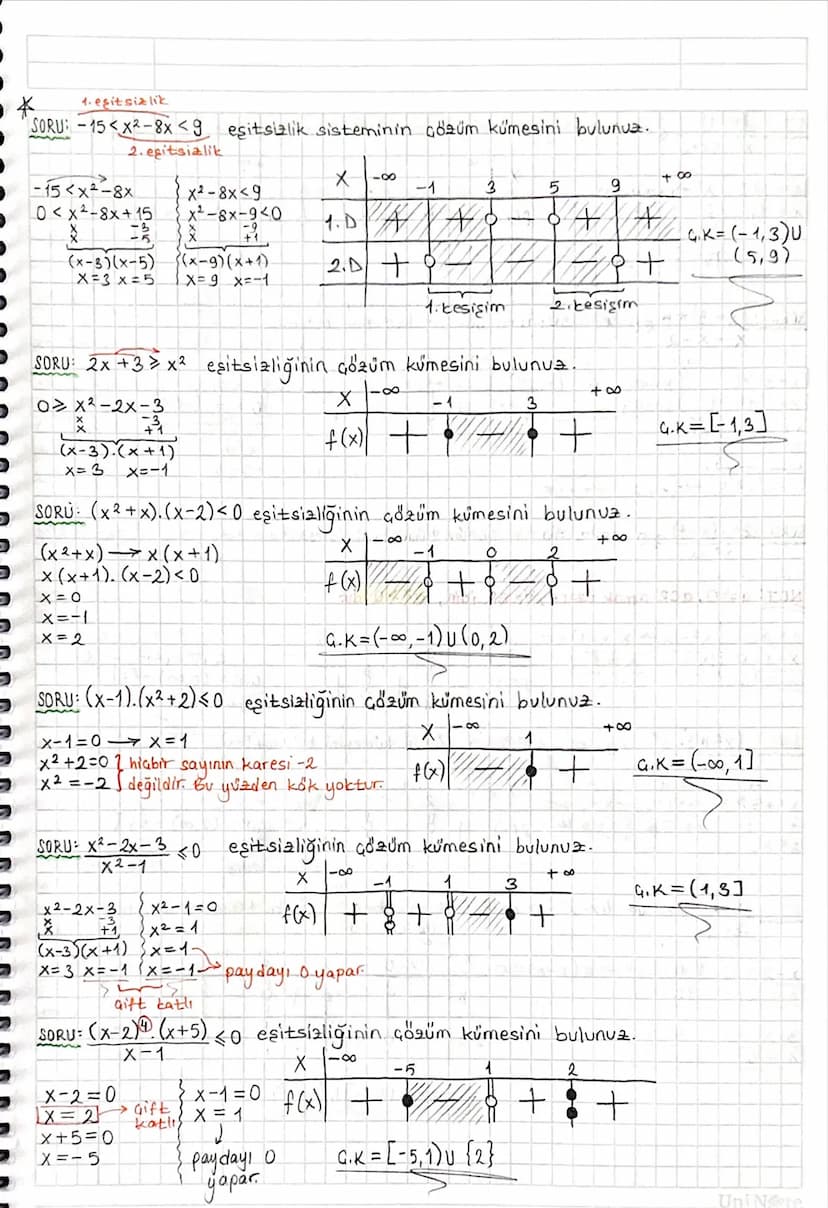 1. eşitsizlik
SORU: -15 < x² - 8x < 9 eşitsizlik sisteminin çözüm kümesini bulunuz.
2. eşitsizlik
-15 < x² - 8x
0 < x² - 8x + 15
x -3
x -5
(x-3)(x-5)
x=3 x=5
x² - 8x < 9
x² - 8x - 9 < 0
x -9
x +1
(x-9)(x+1)
x=9 x=-1
x -∞ -1 3 5 9 +∞
1.D + + - + +
2.D + - - - +
1. kesişim 2. kesişim
Ç.K = (-1,3) ∪
(5,9)
SORU: 2x + 3 ⩾ x² eşitsizliğinin çözüm kümesini bulunuz.
0 ⩾ x² - 2x - 3
x -3
x +1
(x-3).(x+1)
x=3 x=-1
x -∞ -1 3 +∞
f(x) + - +
Ç.K = [-1,3]
SORU: (x²+x).(x-2) < 0 eşitsizliğinin çözüm kümesini bulunuz.
(x²+x) → x(x+1)
x(x+1).(x-2) < 0
x=0
x=-1
x=2
x -∞ -1 0 2 +∞
f(x) - + - +
Ç.K = (-∞,-1) ∪ (0,2)
SORU: (x-1).(x²+2) ⩽ 0 eşitsizliğinin çözüm kümesini bulunuz.
x-1=0 → x=1
x²+2=0 } hiçbir sayının karesi -2
x²=-2 } değildir. Bu yüzden kök yoktur.
x -∞ 1 +∞
f(x) - +
Ç.K = (-∞,1]
SORU: x²-2x-3 / x²-1 ⩽ 0 eşitsizliğinin çözüm kümesini bulunuz.
x²-2x-3
x -3
x +1
(x-3)(x+1)
x=3 x=-1
x²-1=0
x²=1
x=1
x=-1 → paydayı 0 yapar.
çift katlı
x -∞ -1 1 3 +∞
f(x) + + - +
Ç.K = (1,3]
SORU: (x-2)⁴.(x+5) / x-1 ⩽ 0 eşitsizliğinin çözüm kümesini bulunuz.
x-2=0
x=2 → çift
katlı
x+5=0
x=-5
x-1=0
x=1
↓
paydayı 0
yapar.
x -∞ -5 1 2
f(x) + - + +
Ç.K = [-5,1) ∪ {2}
UniNote